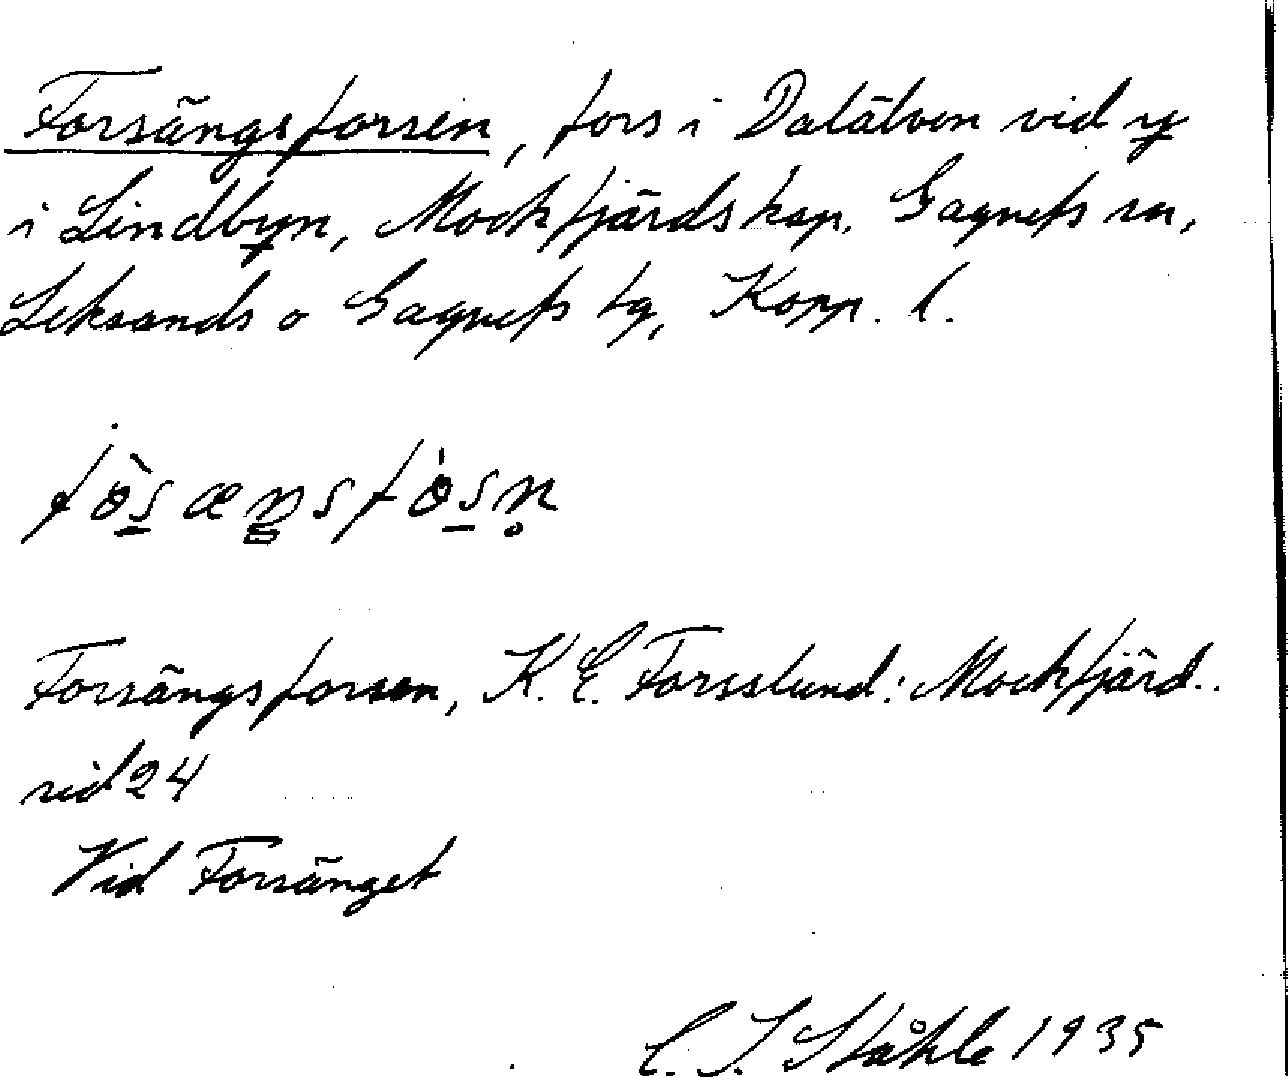 Forsängsforsen, fors i Dalälven vid y
i Lindbyn, Mockfjärds kap. Gagnefs sn,
Leksands o Gagnefs tg, Kopp. l.
Forsängsforsen, K. E. Forsslund: Mockfjärd..
sid 24
Vid Forsänget
C. I. Ståhle 1935